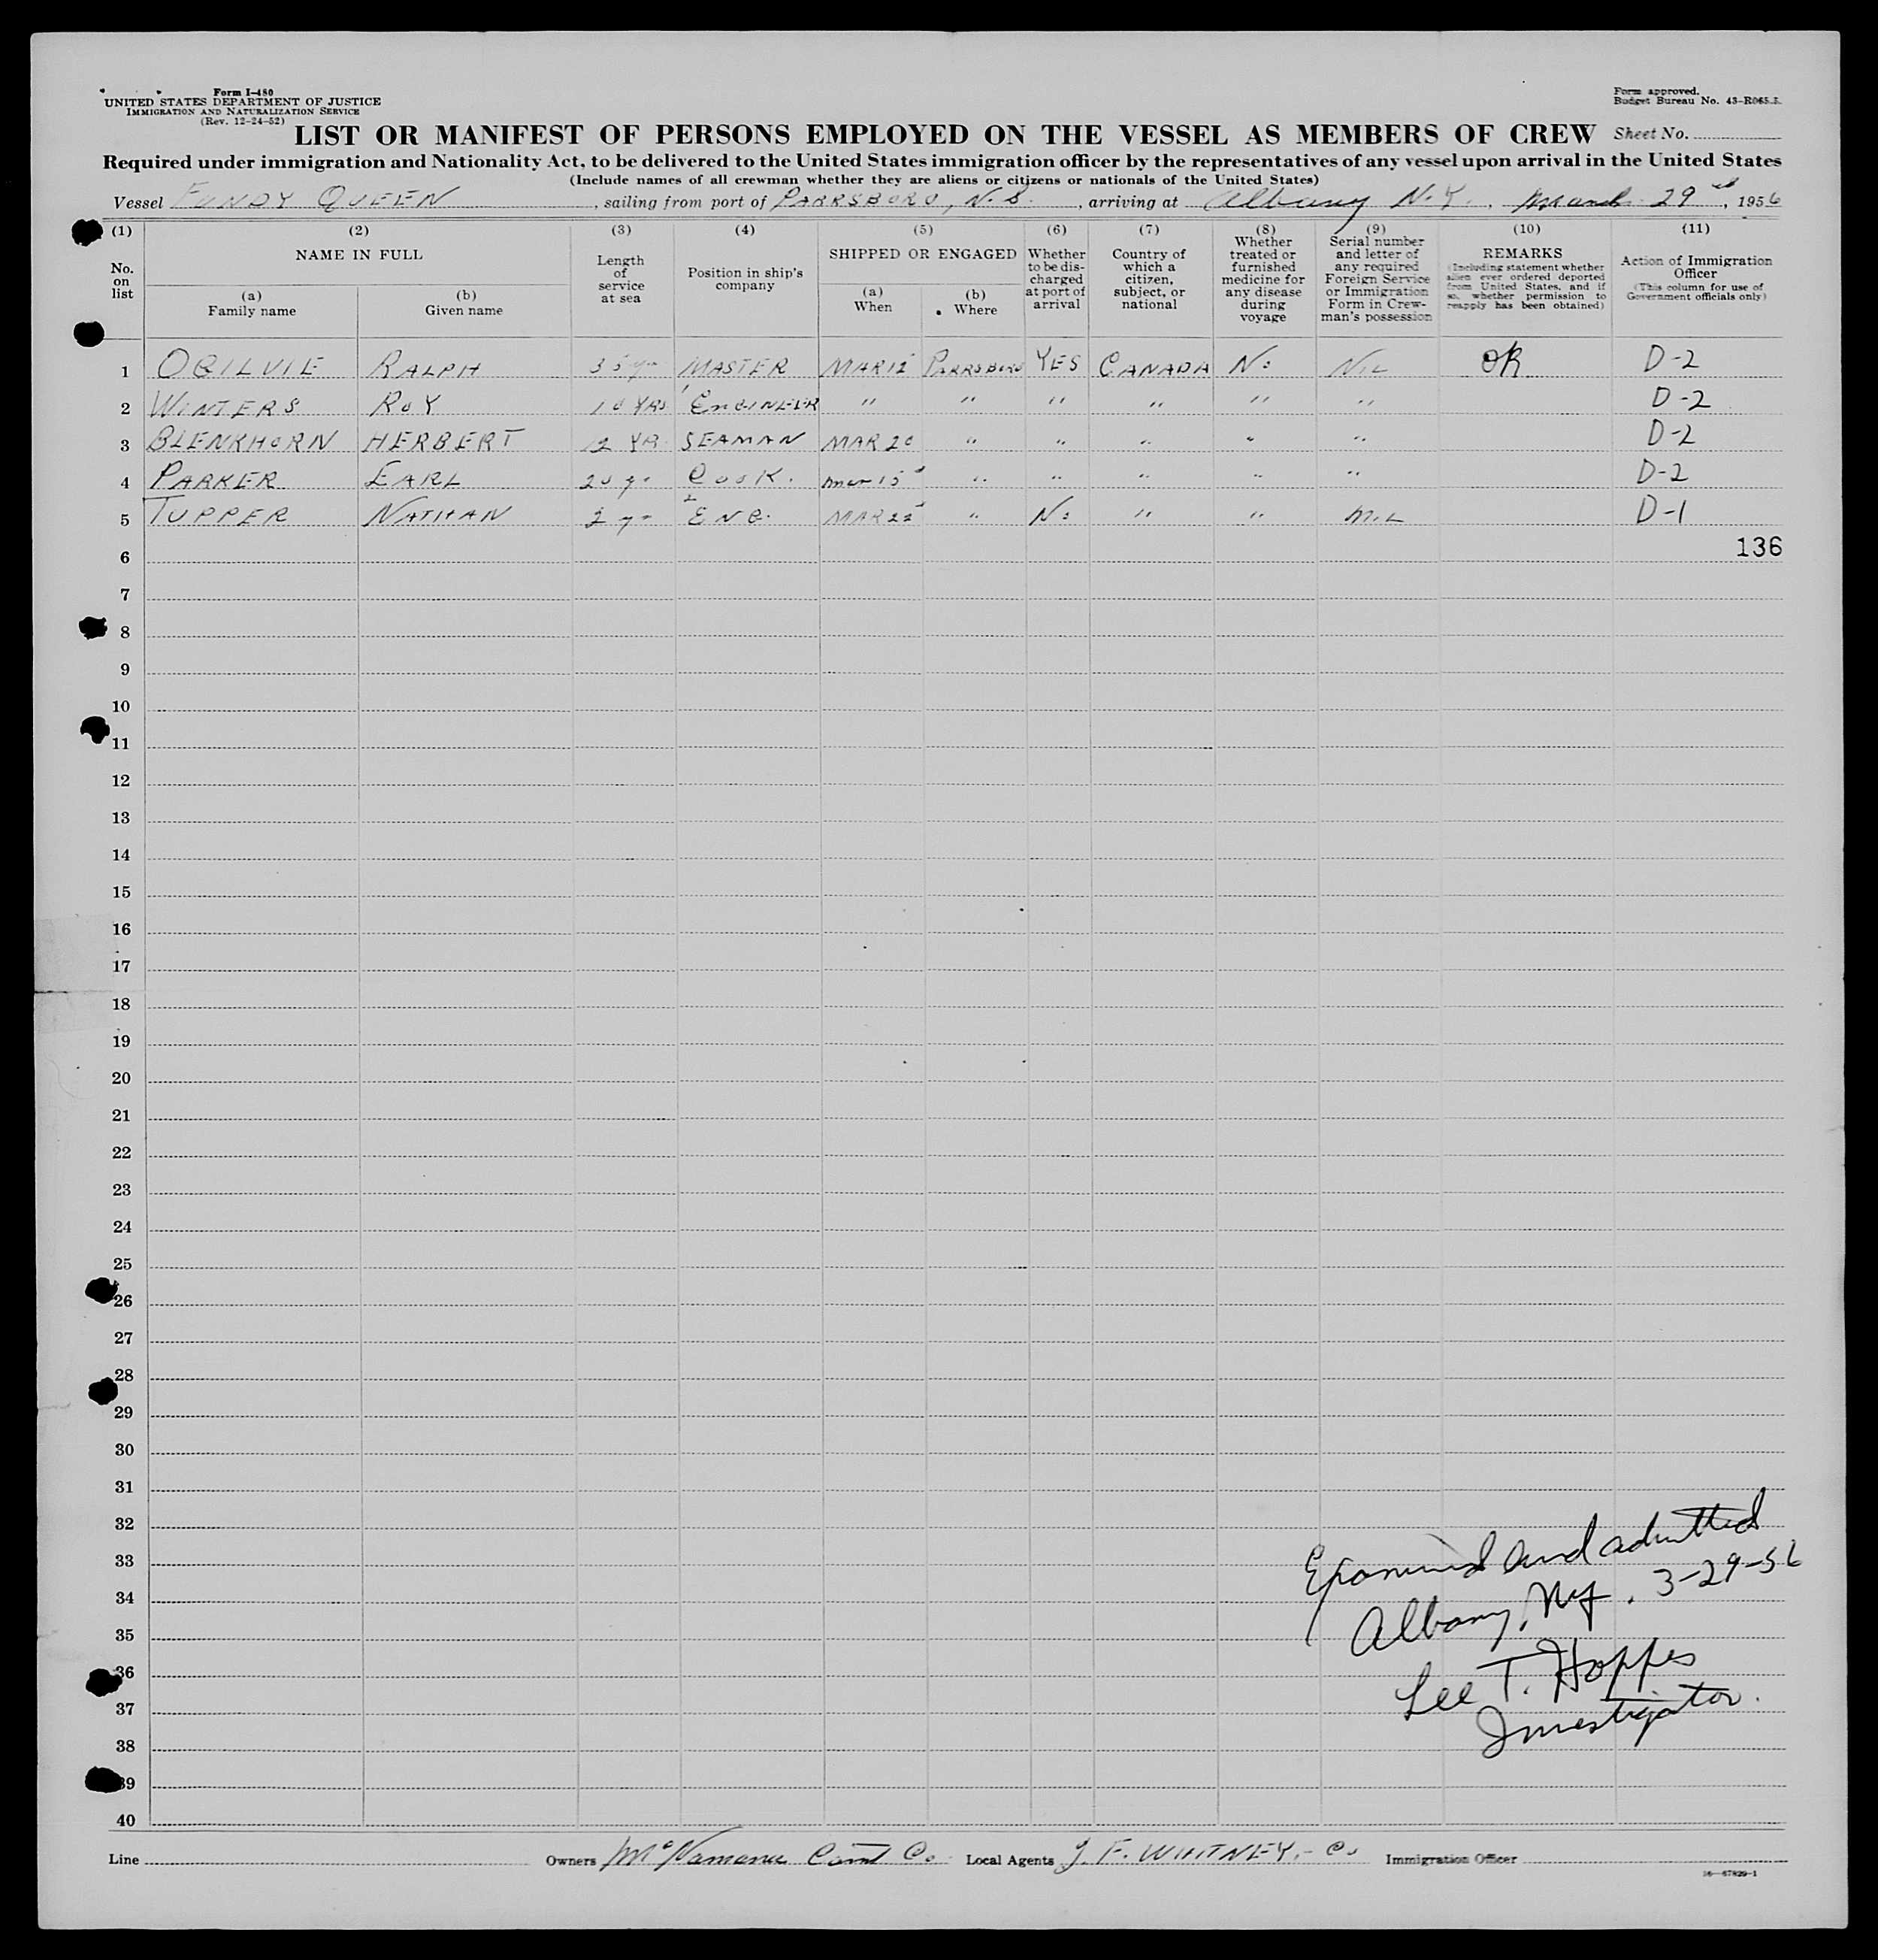 Form I-480
UNITED STATES DEPARTMENT OF JUSTICE
IMMIGRATION AND NATURALIZATION SERVICE
(Rev. 12-24-52)
Form approved.
Budget Bureau No. 43-R065.5.
LIST OR MANIFEST OF PERSONS EMPLOYED ON THE VESSEL AS MEMBERS OF CREW Sheet No.
Required under immigration and Nationality Act, to be delivered to the United States immigration officer by the representatives of any vessel upon arrival in the United States
(Include names of all crewman whether they are aliens or citizens or nationals of the United States)
Vessel FUNDY QUEEN, sailing from port of PARRSBORO, N.S., arriving at Albany N.Y., March 29, 1956
(1) No. on list
(2) NAME IN FULL
(a) Family name
(b) Given name
(3) Length of service at sea
(4) Position in ship's company
(5) SHIPPED OR ENGAGED
(a) When
(b) Where
(6) Whether to be discharged at port of arrival
(7) Country of which a citizen, subject, or national
(8) Whether treated or furnished medicine for any disease during voyage
(9) Serial number and letter of any required Foreign Service or Immigration Form in Crewman's possession
(10) REMARKS (Including statement whether alien ever ordered deported from United States, and if so, whether permission to reapply has been obtained)
(11) Action of Immigration Officer (This column for use of Government officials only)
1 OGILVIE RALPH 35 yr MASTER MAR 15 PARRSBORO YES CANADA No NIL OK D-2
2 WINTERS ROY 10 YRS ENGINEER " " " " " " D-2
3 BLENKHORN HERBERT 12 YR SEAMAN MAR 20 " " " " " D-2
4 PARKER EARL 20 yr COOK. Mar 15 " " " " " D-2
5 TUPPER NATHAN 2 yr 2 ENG. MAR 22 " No " " NIL D-1
136
6
7
8
9
10
11
12
13
14
15
16
17
18
19
20
21
22
23
24
25
26
27
28
29
30
31
32
33
34
35
36
37
38
39
40
Examined and admitted
Albany, NY. 3-29-56
Lee T. Hoppes
Investigator.
Line Owners Co. Local Agents J. F. WHITNEY.- Co Immigration Officer
16—67829-1